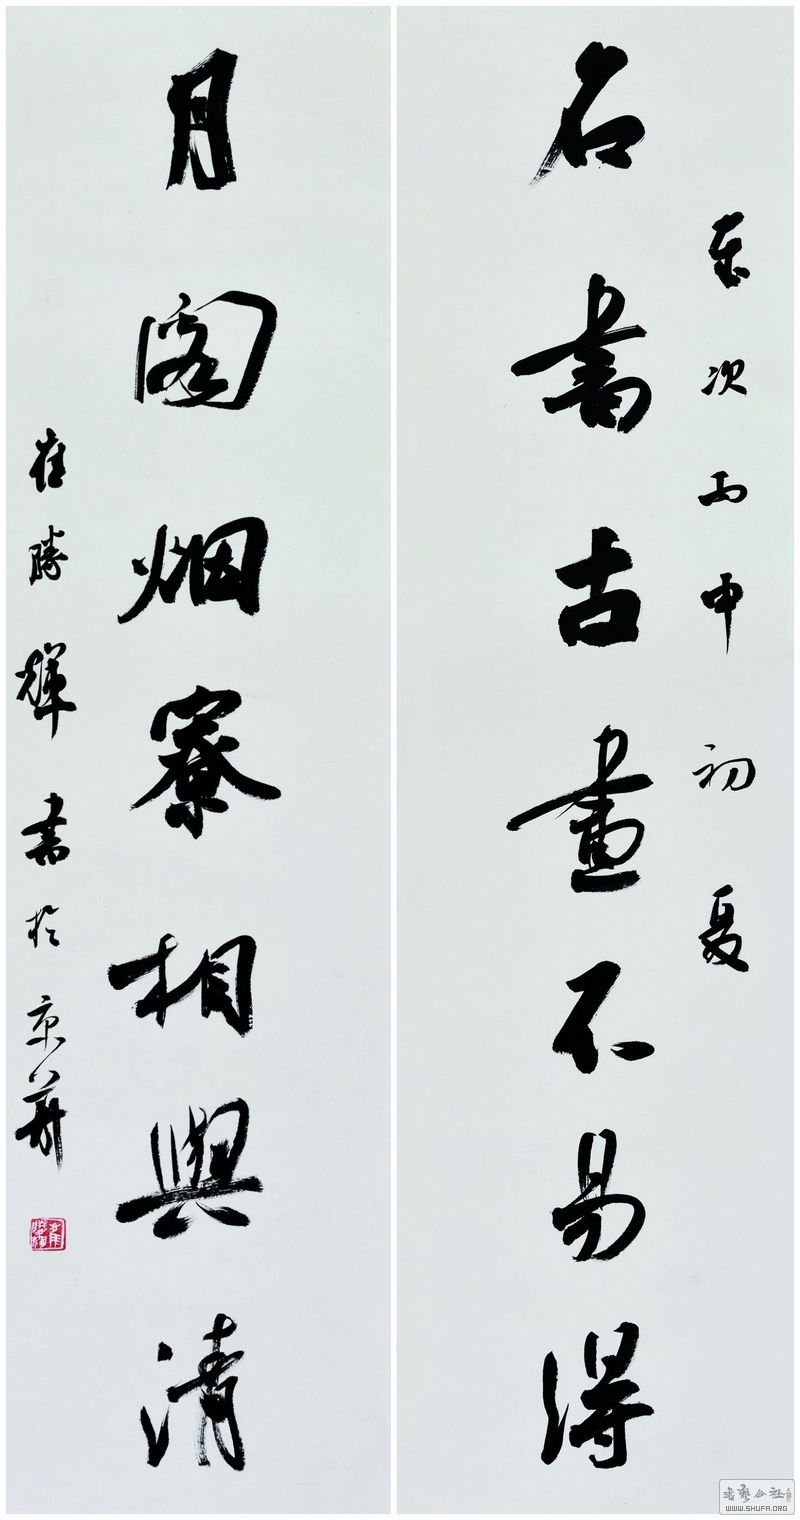 歲次丙申初夏
名書古畫不易得
月閣烟寮相與清
崔勝輝書於京華
WWW.SHUFA.ORG